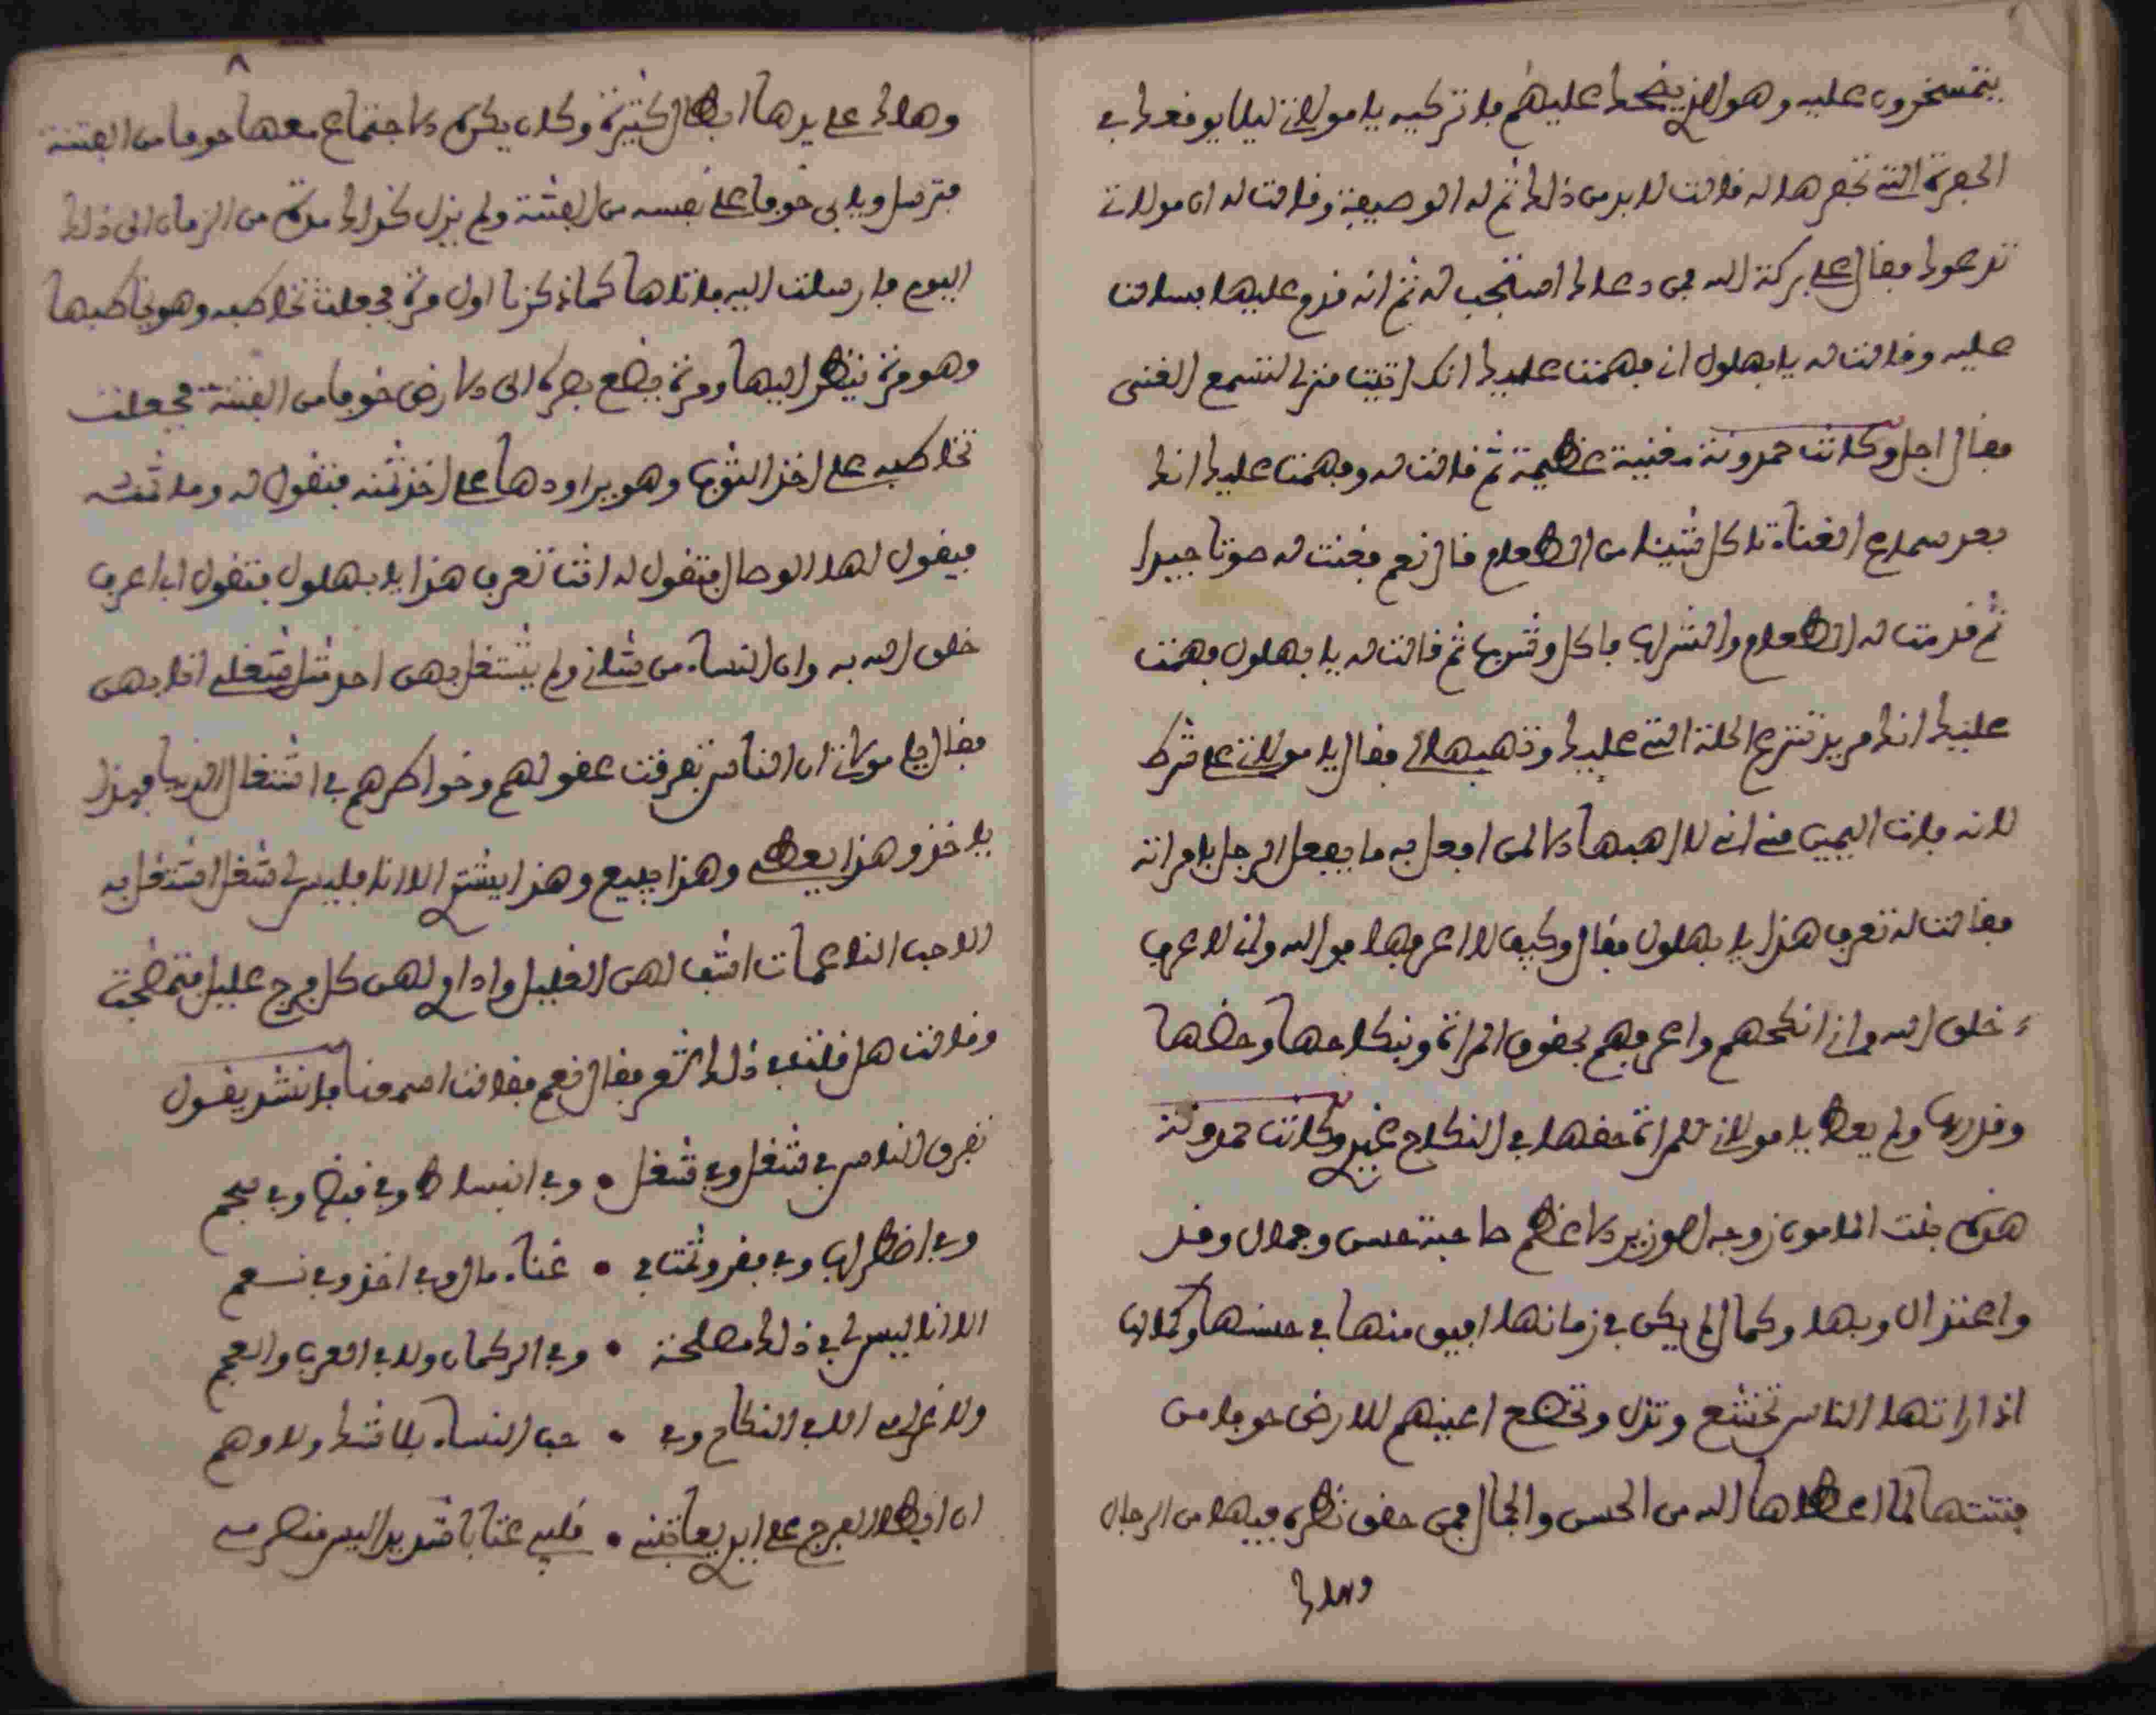 يتمسخرون عليه وهو الذي يضحك عليهم فلا تركيه يا مولاتي ليلا يوقعك في
الحفرة التي تحفرها له فقالت لا بد من ذلك ثم له الوصيفة وقالت له ان مولاتي
تدعوك فقال على بركة الله فمن دعاك استجب له ثم انه قدم عليها فسلمت
عليه وقالت له يا بهلول اني فهمت عليك انك اتيت منزلي لتسمع الغنى
فقال اجل وكانت حمدونة مغنية عظيمة ثم قالت له وفهمت عليك انك
بعد سماع الغناء تاكل شيئا من الطعام قال نعم فغنت له صوتا جيدا
ثم قدمت له الطعام والشراب فاكل وشرب ثم قالت له يا بهلول فهمت
عليك انك مريد تنزع الحلة التي عليك وتهبها لي فقال يا مولاتي على شرط
لانه فات اليمين مني اني لا اهبها الا لمن افعل به ما يفعل الرجل بامراته
فقالت له تعرف هذا يا بهلول فقال وكيف لا اعرفها فوالله واني لا عرف
خلق الله واني انكحهم واعرفهم بحقوق المراة ونكاحها وحضها
وقدرها ولم يعط يا مولاتي للمراة حقها في النكاح غيري وكانت حمدونة
هذه بنت المامون زوجة الوزير الاعظم صاحبة حسن وجمال وقد
واعتدال وبها وكمال لم يكن في زمانها افيق منها في حسنها وكمالها
اذا راتها الناس تخشع وتذل وتخضع اعينهم للارض خوفا من
فتنتها لما اعطاها الله من الحسن والجمال فمن حقق نظره فيها من الرجال
وهلك
٨
وهلك على يدها ابطال كثيرة وكان يكره الاجتماع معها خوفا من الفتنة
فترسل ويابى خوفا على نفسه من الفتنة ولم يزل كذالك مدة من الزمان الى ذلك
اليوم فارسلت اليه فاتاها كما ذكرنا اول مرة فجعلت تخاطبه وهو يخاطبها
وهو مرة ينظر اليها ومرة يضع بصره الى الارض خوفا من الفتنة فجعلت
تخاطبه على اخذ الثوب وهو يراودها على اخذ ثمنه فتقول له وما ثمنه
فيقول لها الوصال فتقول له انت تعرف هذا يا بهلول فتقول انا اعرف
خلق الله به وان النساء من شاني ولم يشتغل بهن احد مثل شغلي انا بهن
فقال يا مولاتي ان الناس تفرقت عقولهم وخواطرهم في اشتغال الدنيا فهذا
ياخذ وهذا يعطي وهذا يبيع وهذا يشتري الا انا فليس لي شغل اشتغل به
الا حب الناعمات اشف لهن الغليل واداوي لهن كل فرج عليل فتعجبت
وقالت هل قلت في ذلك شعر فقال نعم فقالت اسمعنا فانشد يقول
تفرق الناس في شغل وفي شغل • وفي انبساط وفي قبض وفي عجم
وفي اضطراب وفي فقر وثمت في • غناء مال وفي اخذ وفي نسعم
الا انا ليس لي في ذلك مصلحة • وفي التركمان ولا في العرب والعجم
ولا غرامي الا في النكاح وفي • حب النساء بلا شك ولا وهم
ان ابطا الفرج على ايري يعاتبني • قلبي عتابا شديدا ليس منصرم